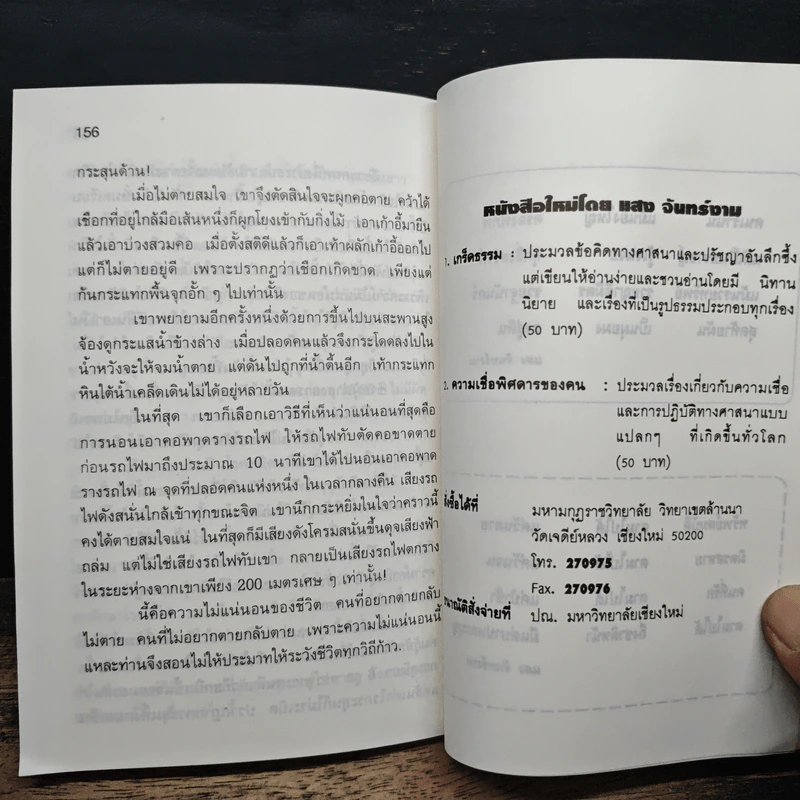 156
กระสุนด้าน!
เมื่อไม่ตายสมใจ เขาจึงตัดสินใจจะผูกคอตาย คว้าได้
เชือกที่อยู่ใกล้มือเส้นหนึ่งก็ผูกโยงเข้ากับกิ่งไม้ เอาเก้าอี้มายืน
แล้วเอาบ่วงสวมคอ เมื่อตั้งสติดีแล้วก็เอาเท้าผลักเก้าอี้ออกไป
แต่ก็ไม่ตายอยู่ดี เพราะปรากฏว่าเชือกเกิดขาด เพียงแต่
ก้นกระแทกพื้นจุกอั้ก ๆ ไปเท่านั้น
เขาพยายามอีกครั้งหนึ่งด้วยการขึ้นไปบนสะพานสูง
จ้องดูกระแสน้ำข้างล่าง เมื่อปลอดคนแล้วจึงกระโดดลงไปใน
น้ำหวังจะให้จมน้ำตาย แต่ดันไปถูกที่น้ำตื้นอีก เท้ากระแทก
หินใต้น้ำเคล็ดเดินไม่ได้อยู่หลายวัน
ในที่สุด เขาก็เลือกเอาวิธีที่เห็นว่าแน่นอนที่สุดคือ
การนอนเอาคอพาดรางรถไฟ ให้รถไฟทับตัดคอขาดตาย
ก่อนรถไฟมาถึงประมาณ 10 นาทีเขาได้ไปนอนเอาคอพาด
รางรถไฟ ณ จุดที่ปลอดคนแห่งหนึ่ง ในเวลากลางคืน เสียงรถ
ไฟดังสนั่นใกล้เข้าทุกขณะจิต เขานึกกระหยิ่มในใจว่าคราวนี้
คงได้ตายสมใจแน่ ในที่สุดก็มีเสียงดังโครมสนั่นขึ้นดุจเสียงฟ้า
ถล่ม แต่ไม่ใช่เสียงรถไฟทับเขา กลายเป็นเสียงรถไฟตกราง
ในระยะห่างจากเขาเพียง 200 เมตรเศษ ๆ เท่านั้น!
นี้คือความไม่แน่นอนของชีวิต คนที่อยากตายกลับ
ไม่ตาย คนที่ไม่อยากตายกลับตาย เพราะความไม่แน่นอนนี้
แหละท่านจึงสอนไม่ให้ประมาทให้ระวังชีวิตทุกวิถีก้าว.
หนังสือใหม่โดย แสง จันทร์งาม
1. เกร็ดธรรม : ประมวลข้อคิดทางศาสนาและปรัชญาอันลึกซึ้ง
แต่เขียนให้อ่านง่ายและชวนอ่านโดยมี นิทาน
นิยาย และเรื่องที่เป็นรูปธรรมประกอบทุกเรื่อง
(50 บาท)
2. ความเชื่อพิศดารของคน : ประมวลเรื่องเกี่ยวกับความเชื่อ
และการปฏิบัติทางศาสนาแบบ
แปลกๆ ที่เกิดขึ้นทั่วโลก
(50 บาท)
สั่งซื้อได้ที่
มหามกุฏราชวิทยาลัย วิทยาเขตล้านนา
วัดเจดีย์หลวง เชียงใหม่ 50200
โทร. 270975
Fax. 270976
ธนาณัติสั่งจ่ายที่ ปณ. มหาวิทยาลัยเชียงใหม่